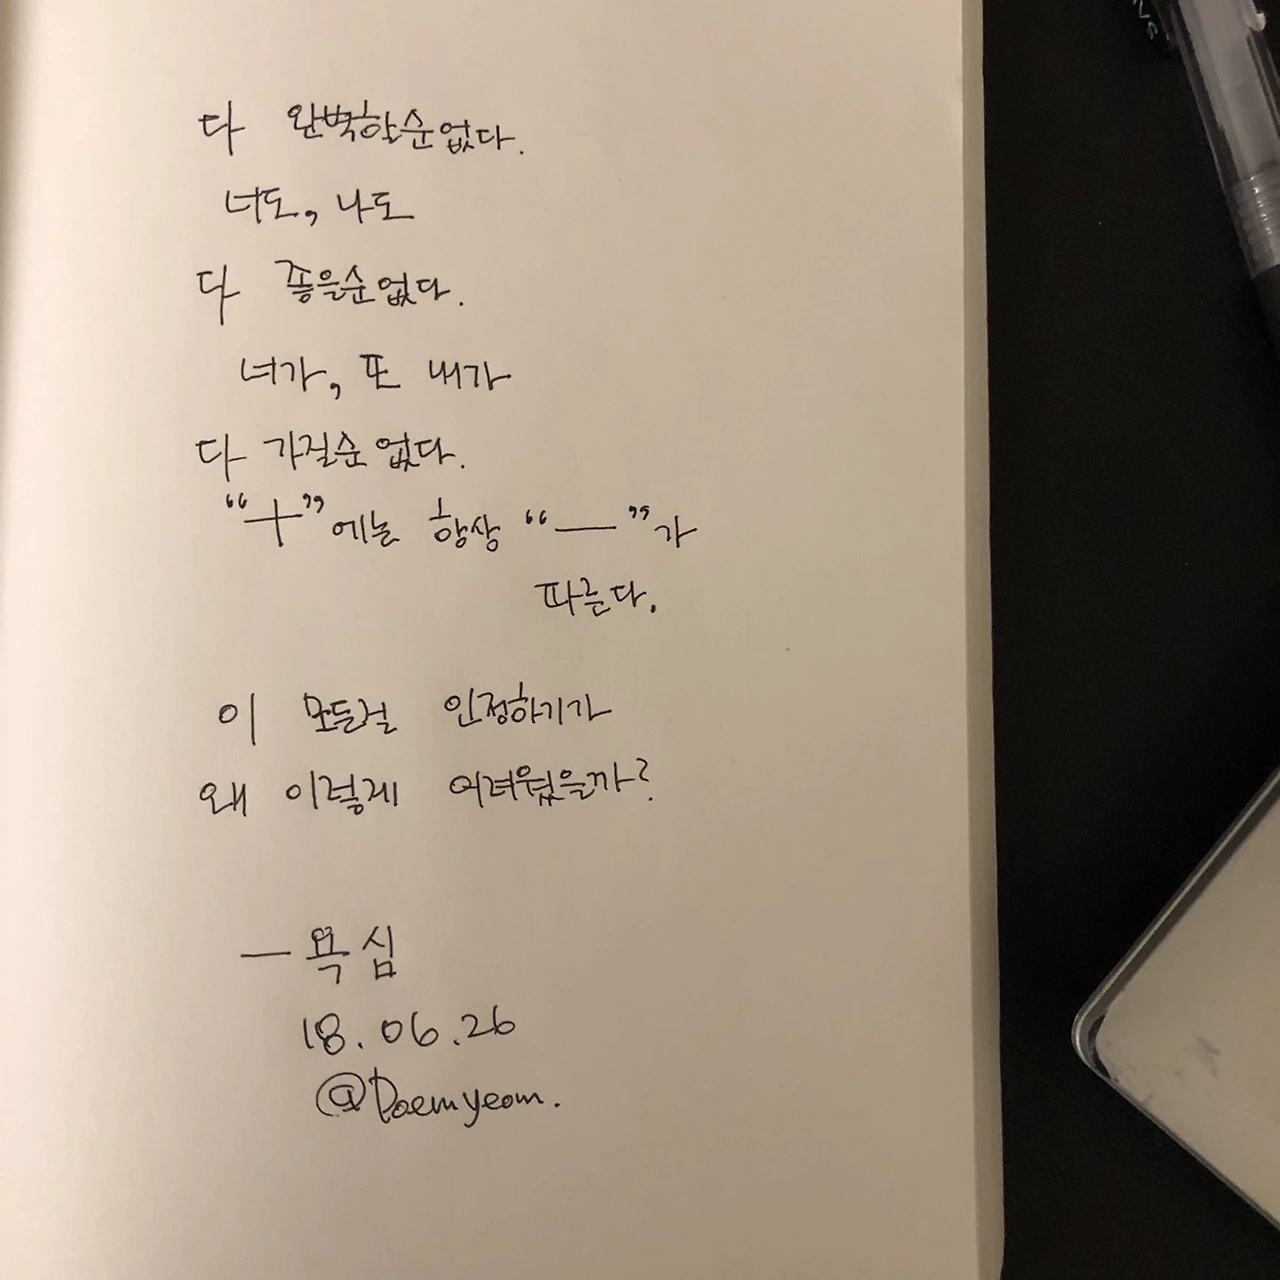 다 완벽할순없다.
너도, 나도
다 좋을순없다.
너가, 또 내가
다 가질순없다.
“+”에는 항상 “—”가
따른다.
이 모든걸 인정하기가
왜 이렇게 어려웠을까?
— 욕심
18.06.26
@Poemyeom.